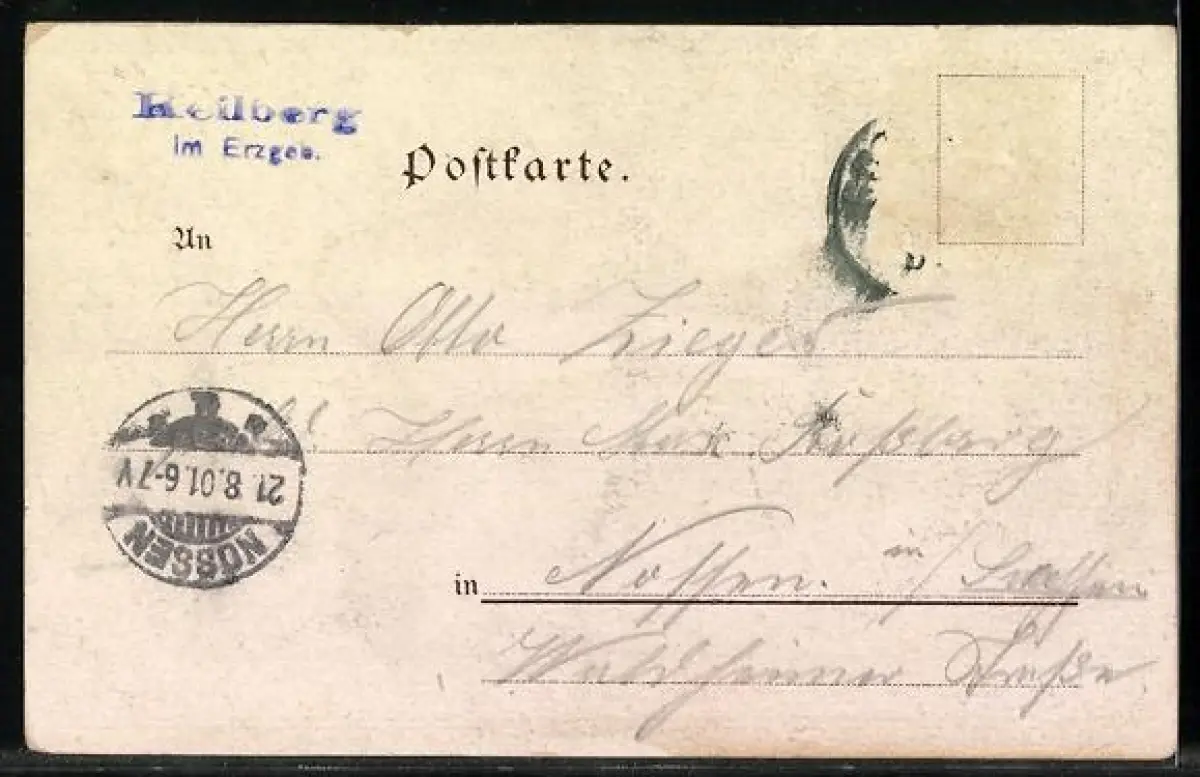 Keilberg
im Erzgeb.
Postkarte.
An
Herrn Otto Zieger
Herrn Max
in Nossen. in / Sachsen
Waldheimer Straße
21.8.01.6-7V
NOSSEN